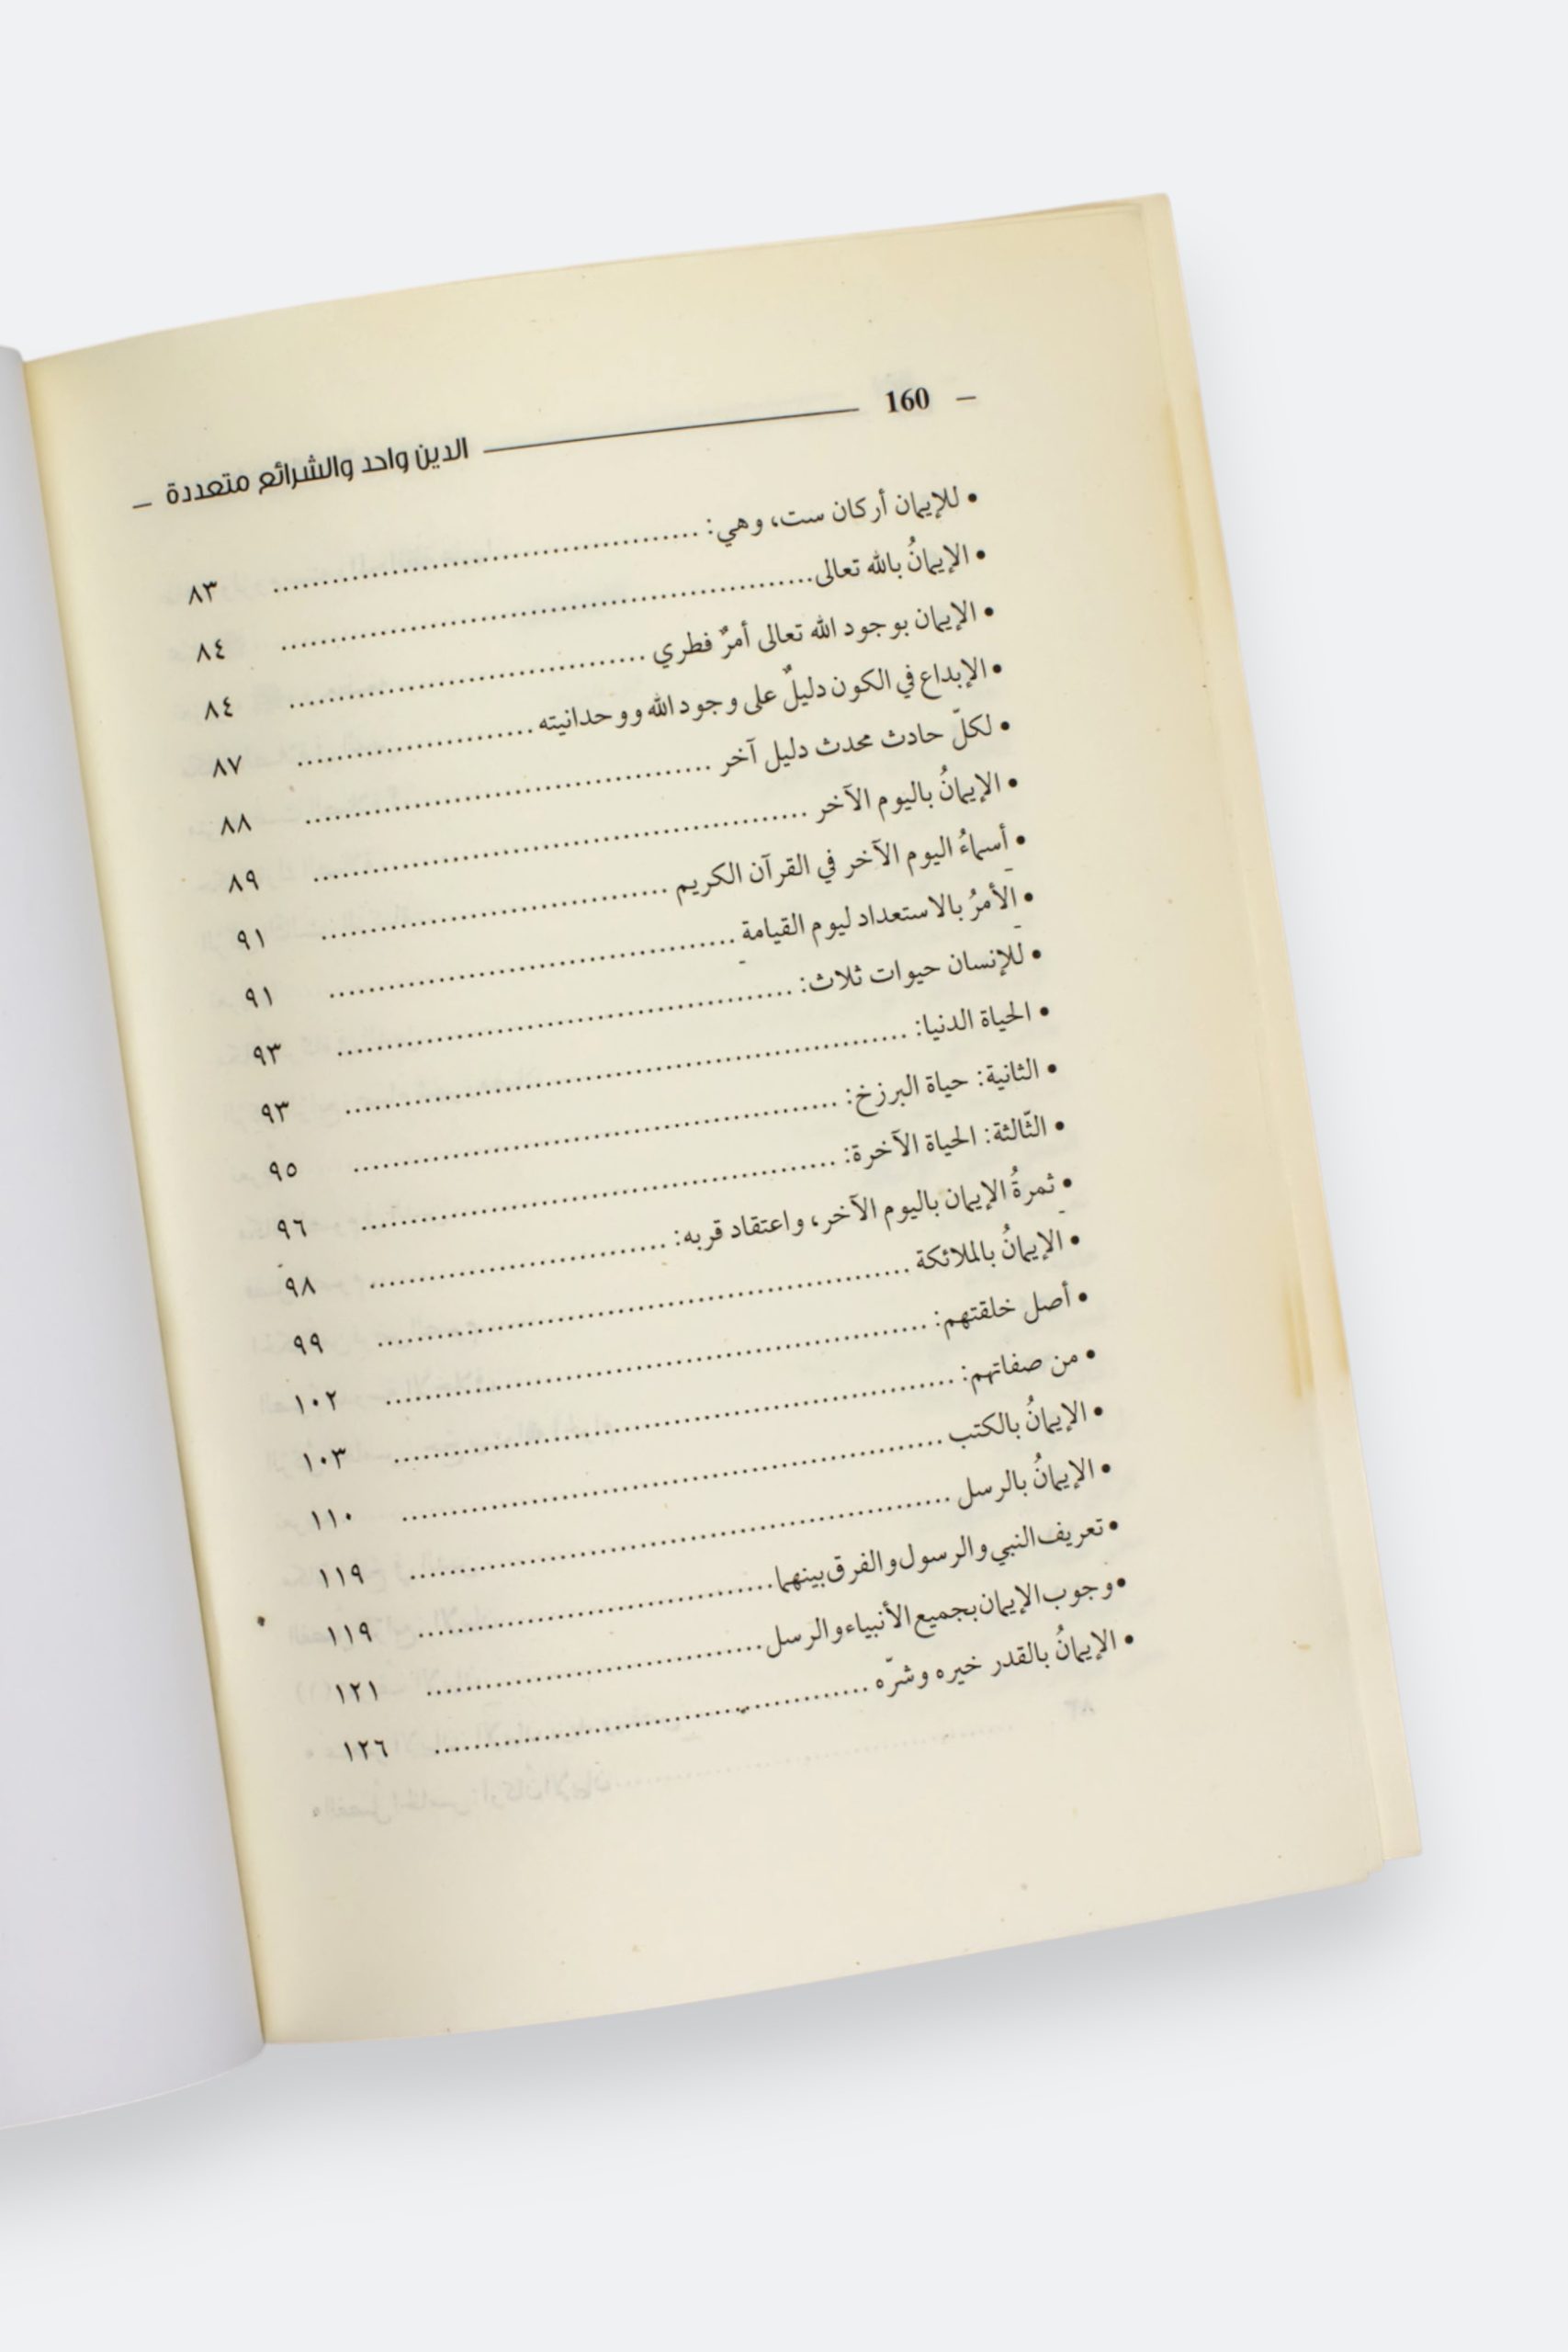 160 الدين واحد والشرائع متعددة
• للإيمان أركان ست، وهي: ........ ٨٣
• الإيمانُ بالله تعالى ........ ٨٤
• الإيمان بوجود الله تعالى أمرٌ فطري ........ ٨٤
• الإبداع في الكون دليلٌ على وجود الله ووحدانيته ........ ٨٧
• لكلّ حادث محدث دليل آخر ........ ٨٨
• الإيمانُ باليوم الآخر ........ ٨٩
• أسماءُ اليوم الآخر في القرآن الكريم ........ ٩١
• الأمرُ بالاستعداد ليوم القيامة ........ ٩١
• للإنسان حيوات ثلاث: ........ ٩٣
• الحياة الدنيا: ........ ٩٣
• الثانية: حياة البرزخ: ........ ٩٥
• الثّالثة: الحياة الآخرة: ........ ٩٦
• ثمرةُ الإيمان باليوم الآخر، واعتقاد قربه: ........ ٩٨
• الإيمانُ بالملائكة ........ ٩٩
• أصل خلقتهم: ........ ١٠٢
• من صفاتهم: ........ ١٠٣
• الإيمانُ بالكتب ........ ١١٠
• الإيمانُ بالرسل ........ ١١٩
• تعريف النبي والرسول والفرق بينهما ........ ١١٩
• وجوب الإيمان بجميع الأنبياء والرسل ........ ١٢١
• الإيمانُ بالقدر خيره وشرّه ........ ١٢٦